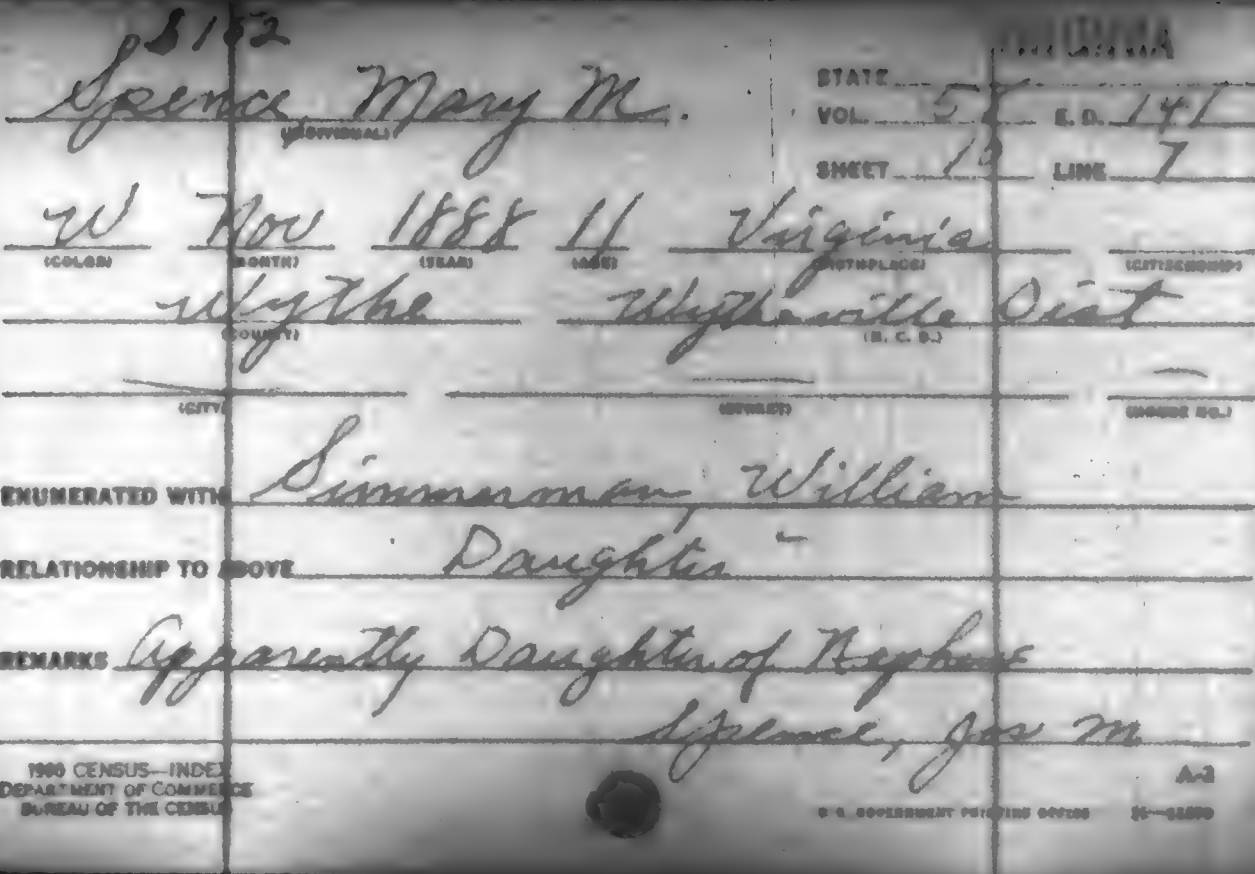 S152
Spence, Mary M.
(INDIVIDUAL)
STATE
VOL. E. D. 141
SHEET LINE 7
W Nov 1888 11 Virginia
(COLOR) (MONTH) (YEAR) (AGE) (BIRTHPLACE) (CITIZENSHIP)
Wythe Wytheville Dist
(COUNTY) (M. C. D.)
(CITY) (STREET) (HOUSE NO.)
ENUMERATED WITH Simmerman, William
RELATIONSHIP TO ABOVE Daughter
REMARKS Apparently Daughter of Nephew
Spence, Jos M
1900 CENSUS—INDEX
DEPARTMENT OF COMMERCE
BUREAU OF THE CENSUS
A-2
U. S. GOVERNMENT PRINTING OFFICE